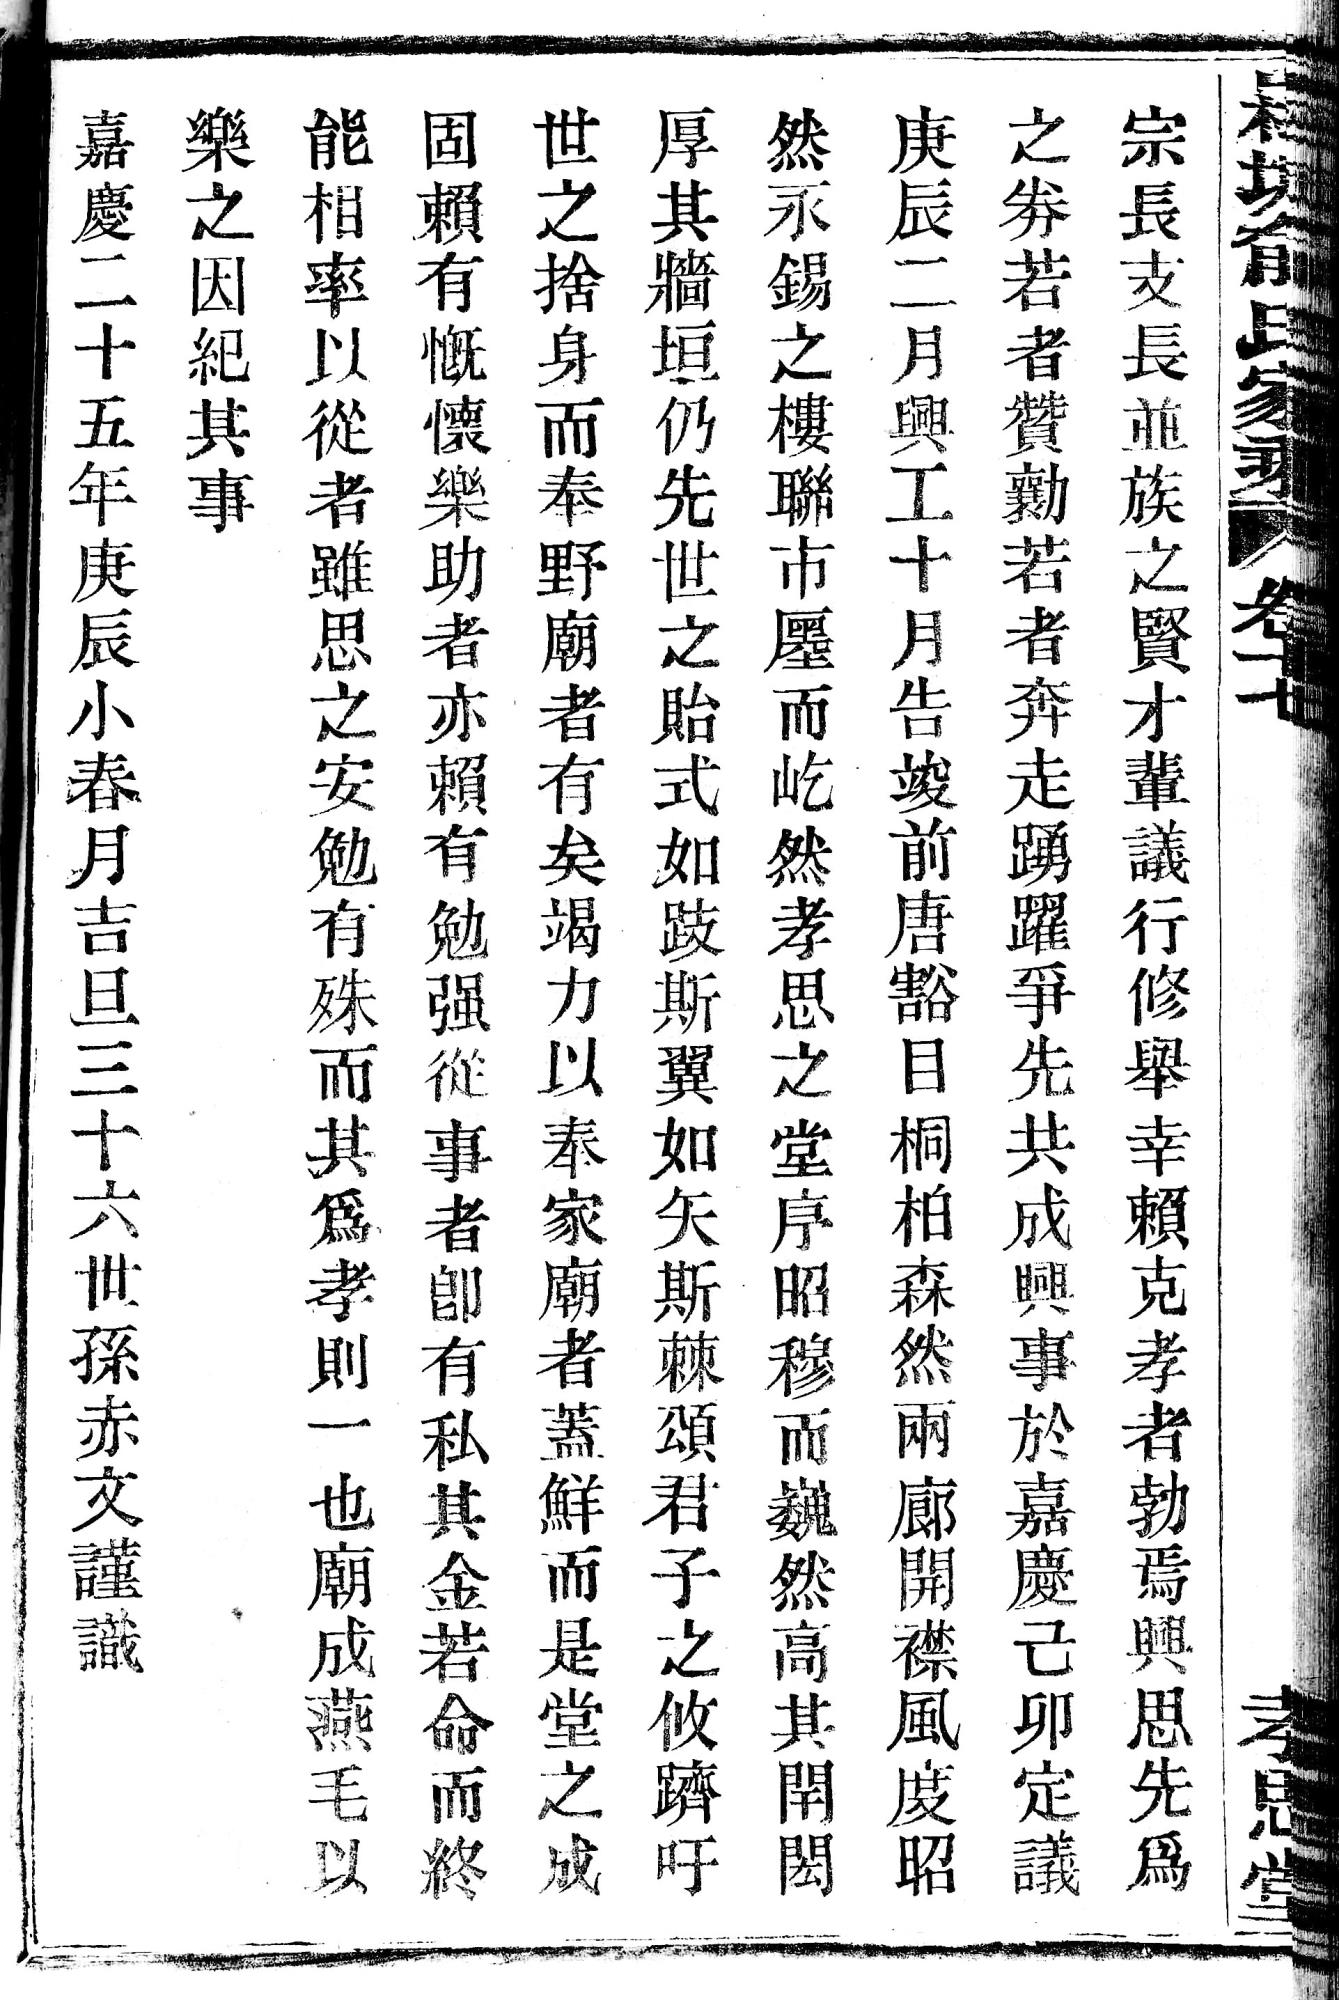 俞氏家乘 卷十七 孝思堂
宗長支長並族之賢才輩議行修舉幸賴克孝者勃焉興思先爲
之劵若者贊勷若者奔走踴躍爭先共成興事於嘉慶己卯定議
庚辰二月興工十月告竣前唐豁目桐柏森然兩廊開襟風度昭
然永錫之樓聯市廛而屹然孝思之堂序昭穆而巍然高其閈閎
厚其牆垣仍先世之貽式如跂斯翼如矢斯棘頌君子之攸躋吁
世之捨身而奉野廟者有矣竭力以奉家廟者蓋鮮而是堂之成
固賴有慨懷樂助者亦賴有勉强從事者卽有私其金若命而終
能相率以從者雖思之安勉有殊而其爲孝則一也廟成燕毛以
樂之因紀其事
嘉慶二十五年庚辰小春月吉旦三十六世孫赤文謹識